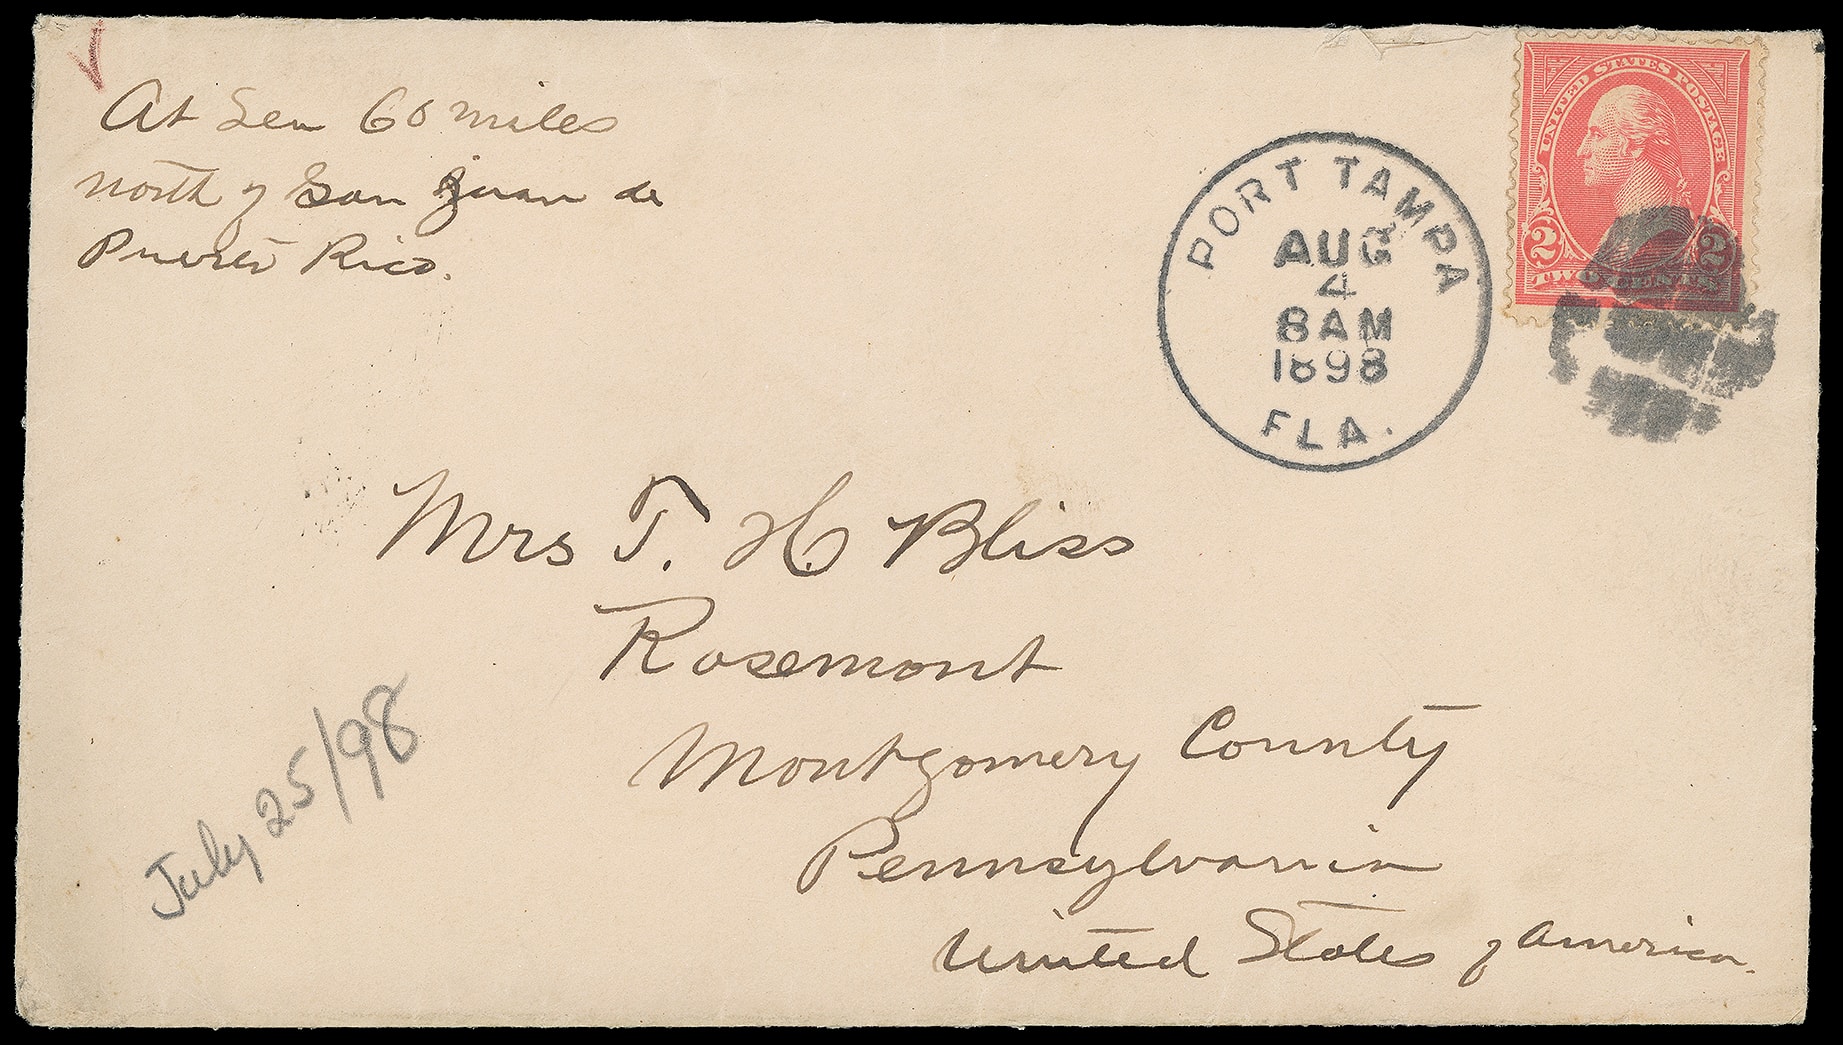 At Sea 60 miles
north of San Juan de
Puerto Rico.
UNITED STATES POSTAGE
2 2
TWO CENTS
PORT TAMPA
AUG
4
8AM
1898
FLA.
Mrs T. H. Bliss
Rosemont
Montgomery County
Pennsylvania
United States of America.
July 25/98